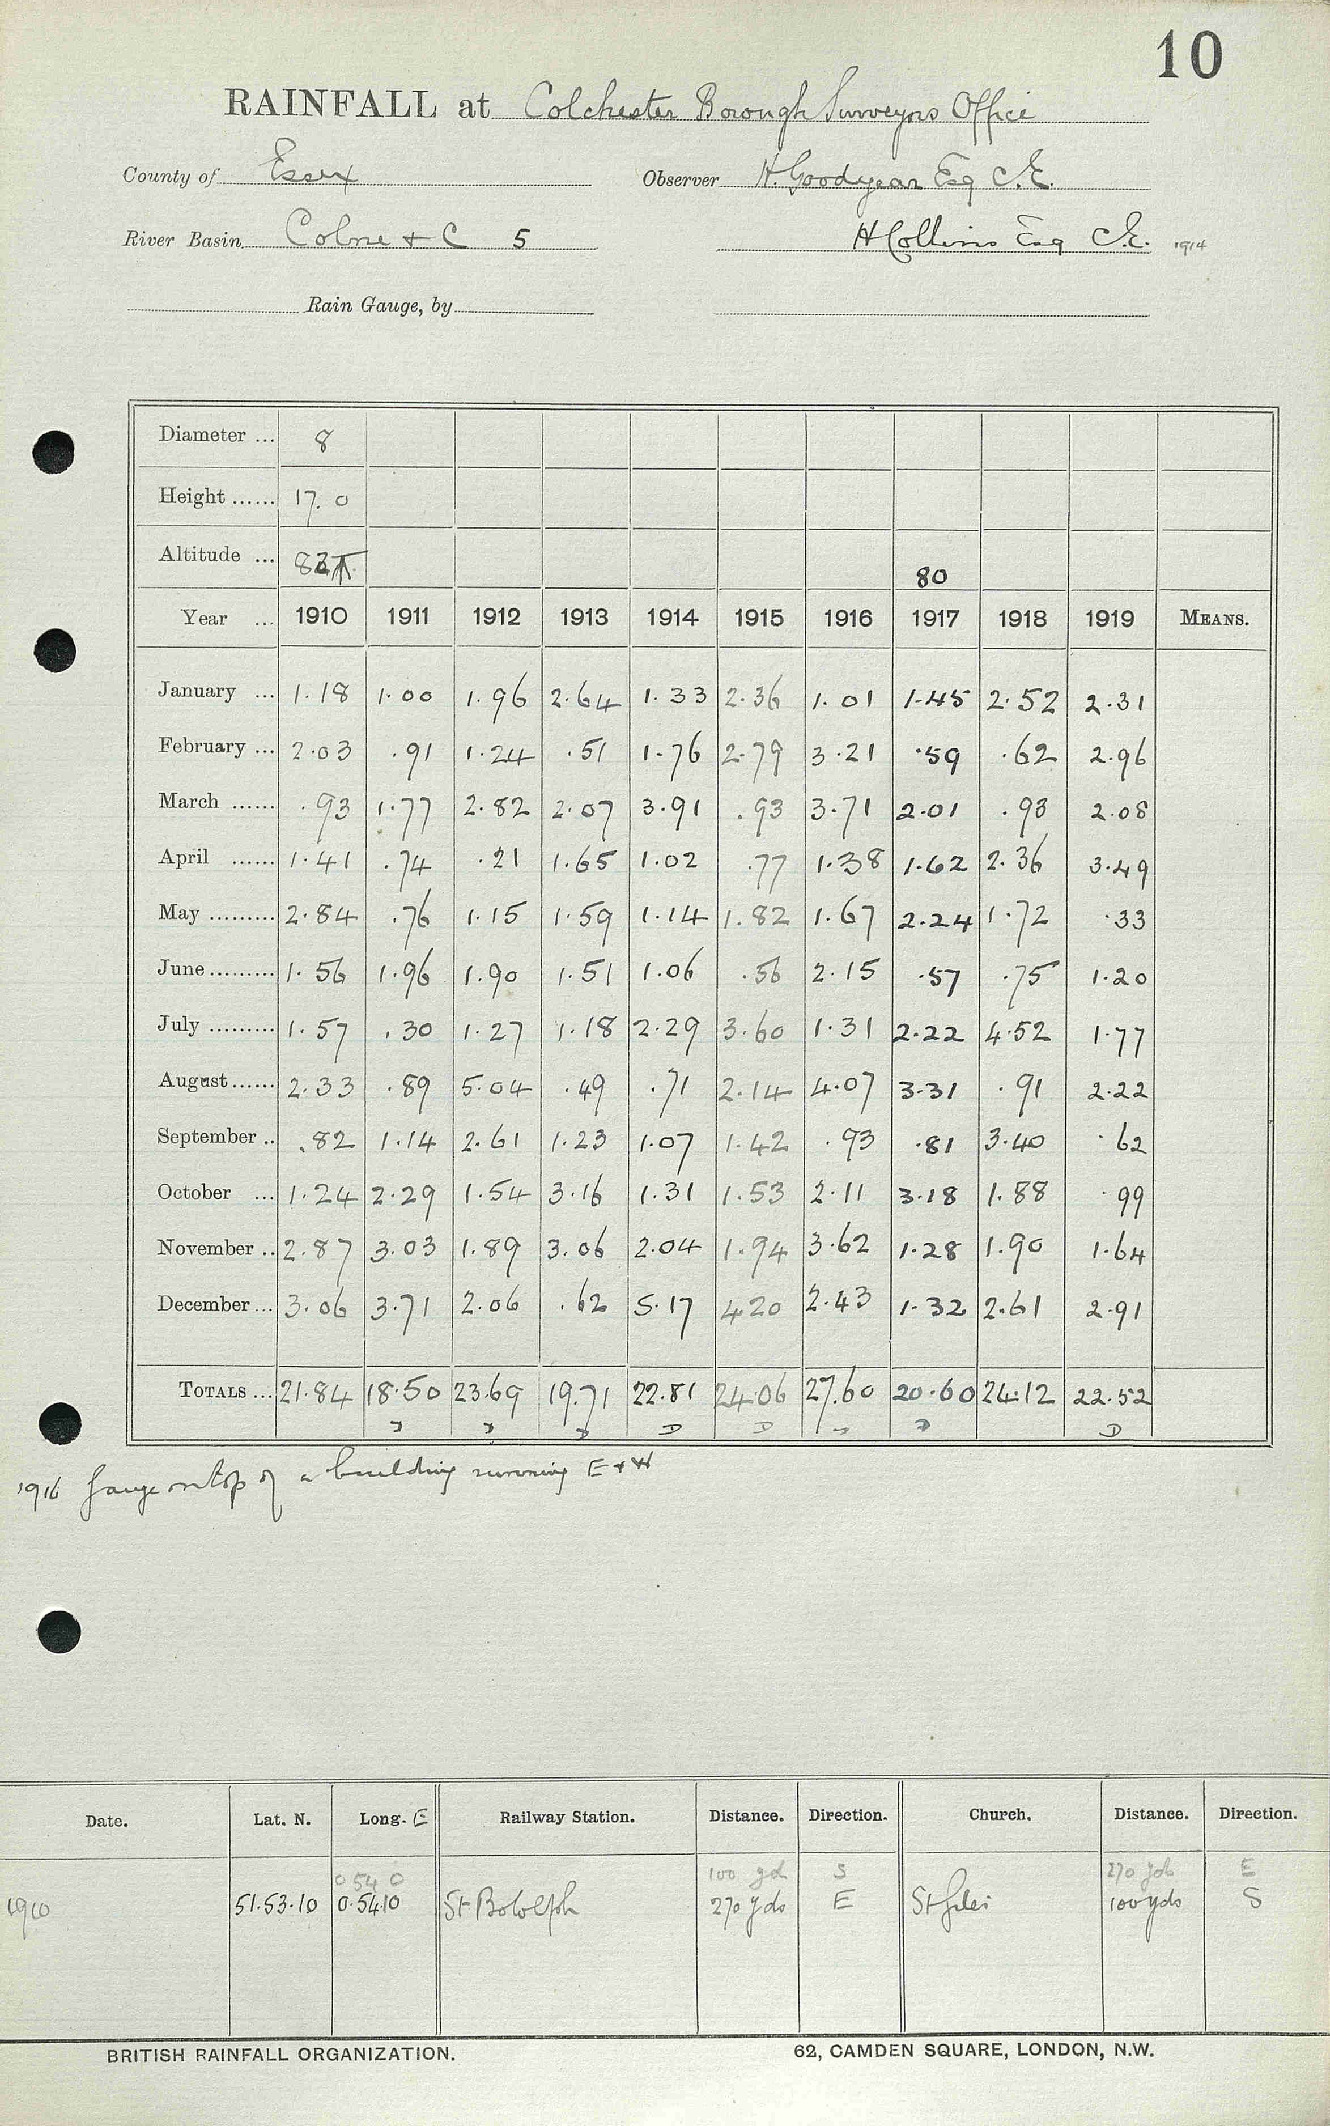 10
RAINFALL at Colchester Borough Surveyors Office
County of Essex Observer H. Goodyear Esq C.E.
River Basin Colne + C 5 H Collins Esq C.E. 1914
Rain Gauge, by
Diameter ... 8
Height ...... 17. 0
Altitude ... 80
Year ... 1910 1911 1912 1913 1914 1915 1916 1917 1918 1919 MEANS.
January ... 1.18 1.00 1.96 2.64 1.33 2.36 1.01 1.45 2.52 2.31
February ... 2.03 .91 1.24 .51 1.76 2.79 3.21 .59 .62 2.96
March ...... .93 1.77 2.82 2.07 3.91 .93 3.71 2.01 .93 2.08
April ...... 1.41 .74 .21 1.65 1.02 .77 1.38 1.62 2.36 3.49
May ......... 2.84 .76 1.15 1.59 1.14 1.82 1.67 2.24 1.72 .33
June ......... 1.56 1.96 1.90 1.51 1.06 .56 2.15 .57 .75 1.20
July ......... 1.57 .30 1.27 1.18 2.29 3.60 1.31 2.22 4.52 1.77
August ...... 2.33 .89 5.04 .49 .71 2.14 4.07 3.31 .91 2.22
September .. .82 1.14 2.61 1.23 1.07 1.42 .93 .81 3.40 .62
October ... 1.24 2.29 1.54 3.16 1.31 1.53 2.11 3.18 1.88 .99
November .. 2.87 3.03 1.89 3.06 2.04 1.94 3.62 1.28 1.90 1.64
December ... 3.06 3.71 2.06 .62 5.17 4 20 2.43 1.32 2.61 2.91
TOTALS ... 21.84 18.50 23.69 19.71 22.81 24.06 27.60 20.60 24.12 22.52
1916 Gauge on top of a building running E + W
Date. Lat. N. Long. E Railway Station. Distance. Direction. Church. Distance. Direction.
0 54 0 100 yd S 270 yds E
1910 51.53.10 0.54.10 St Botolph 270 yds E St Giles 100 yds S
BRITISH RAINFALL ORGANIZATION. 62, CAMDEN SQUARE, LONDON, N.W.